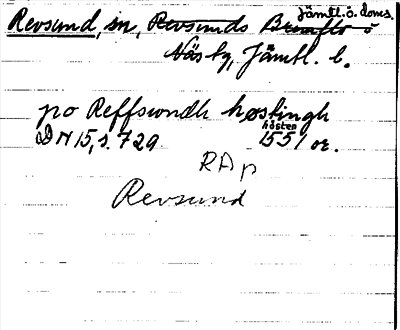 Revsund, sn, Revsunds Brunflo o Jämtl. ö. doms.
Näs tg, Jämtl. l.
po Reffswndh høstingh
DN 15, s. 729 hösten 1551 or.
RAp
Revsund